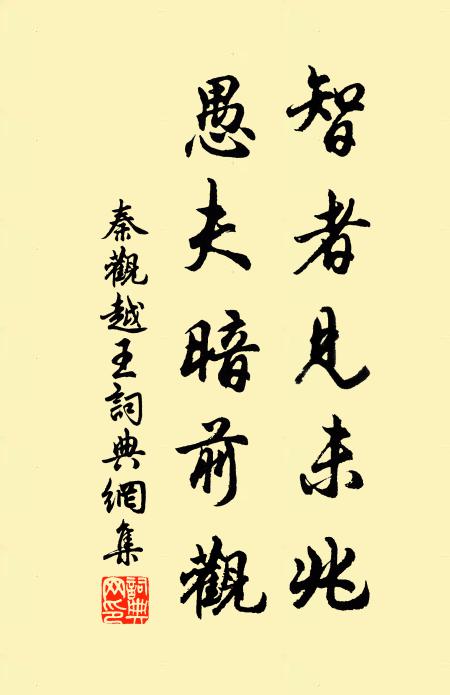 智者見未兆
愚夫暗前觀
秦觀越王詞典網集
詞典網印